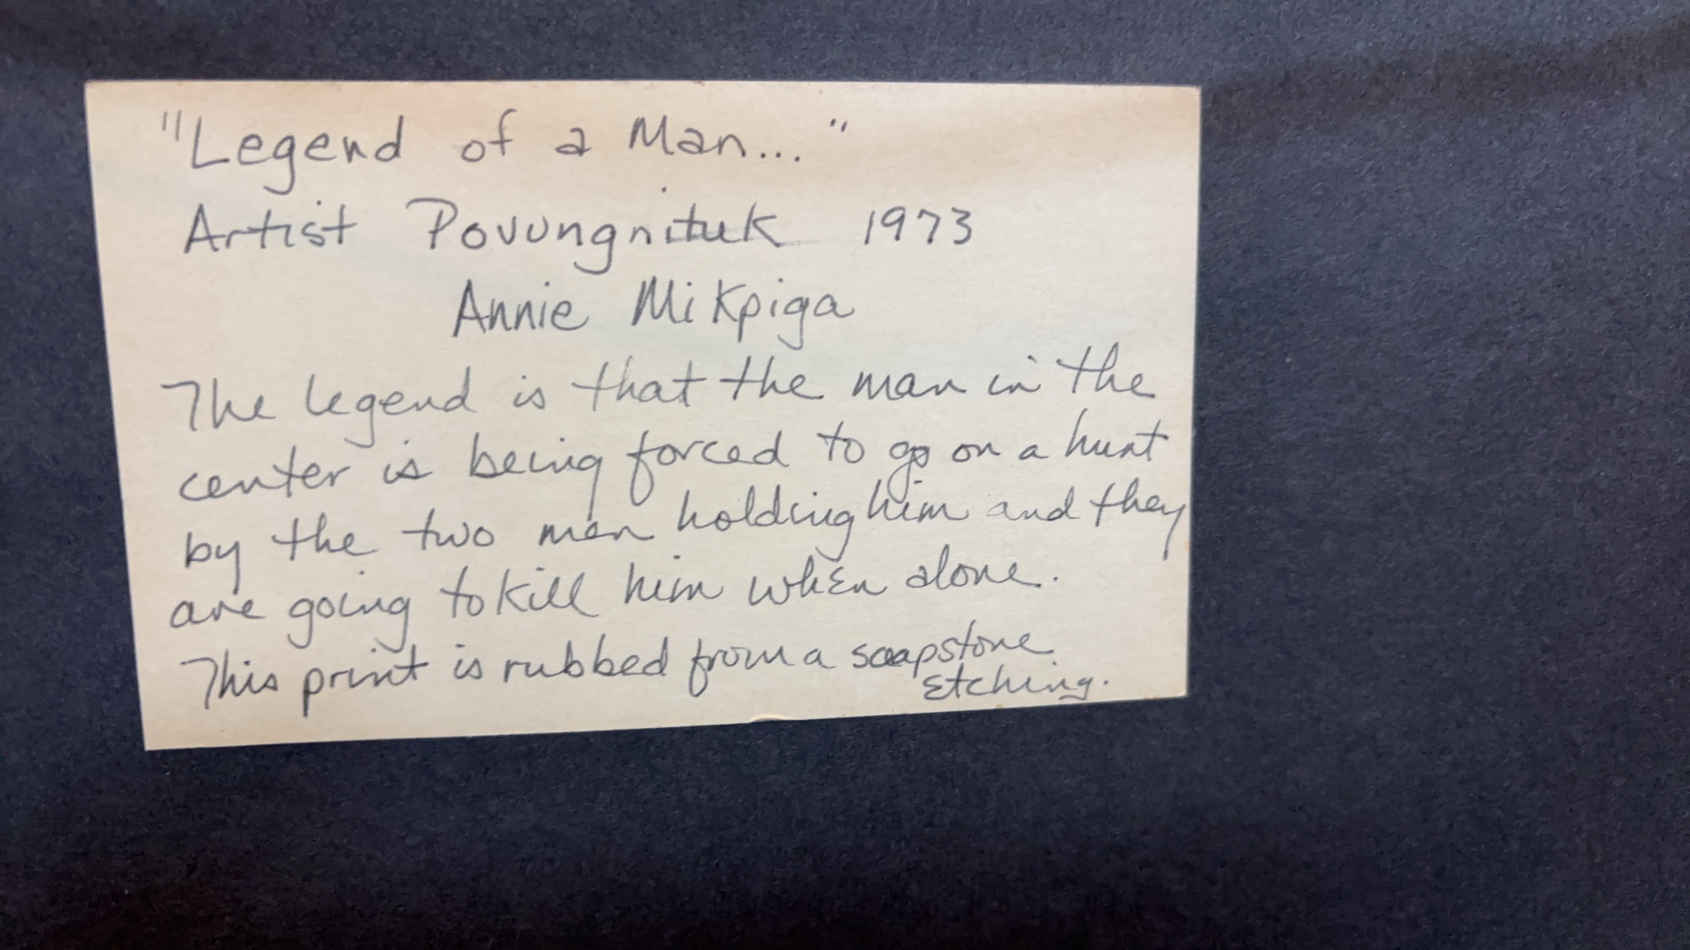 "Legend of a Man..."
Artist Povungnituk 1973
Annie Mikpiga
The legend is that the man in the
center is being forced to go on a hunt
by the two men holding him and they
are going to kill him when alone.
This print is rubbed from a soapstone
etching.